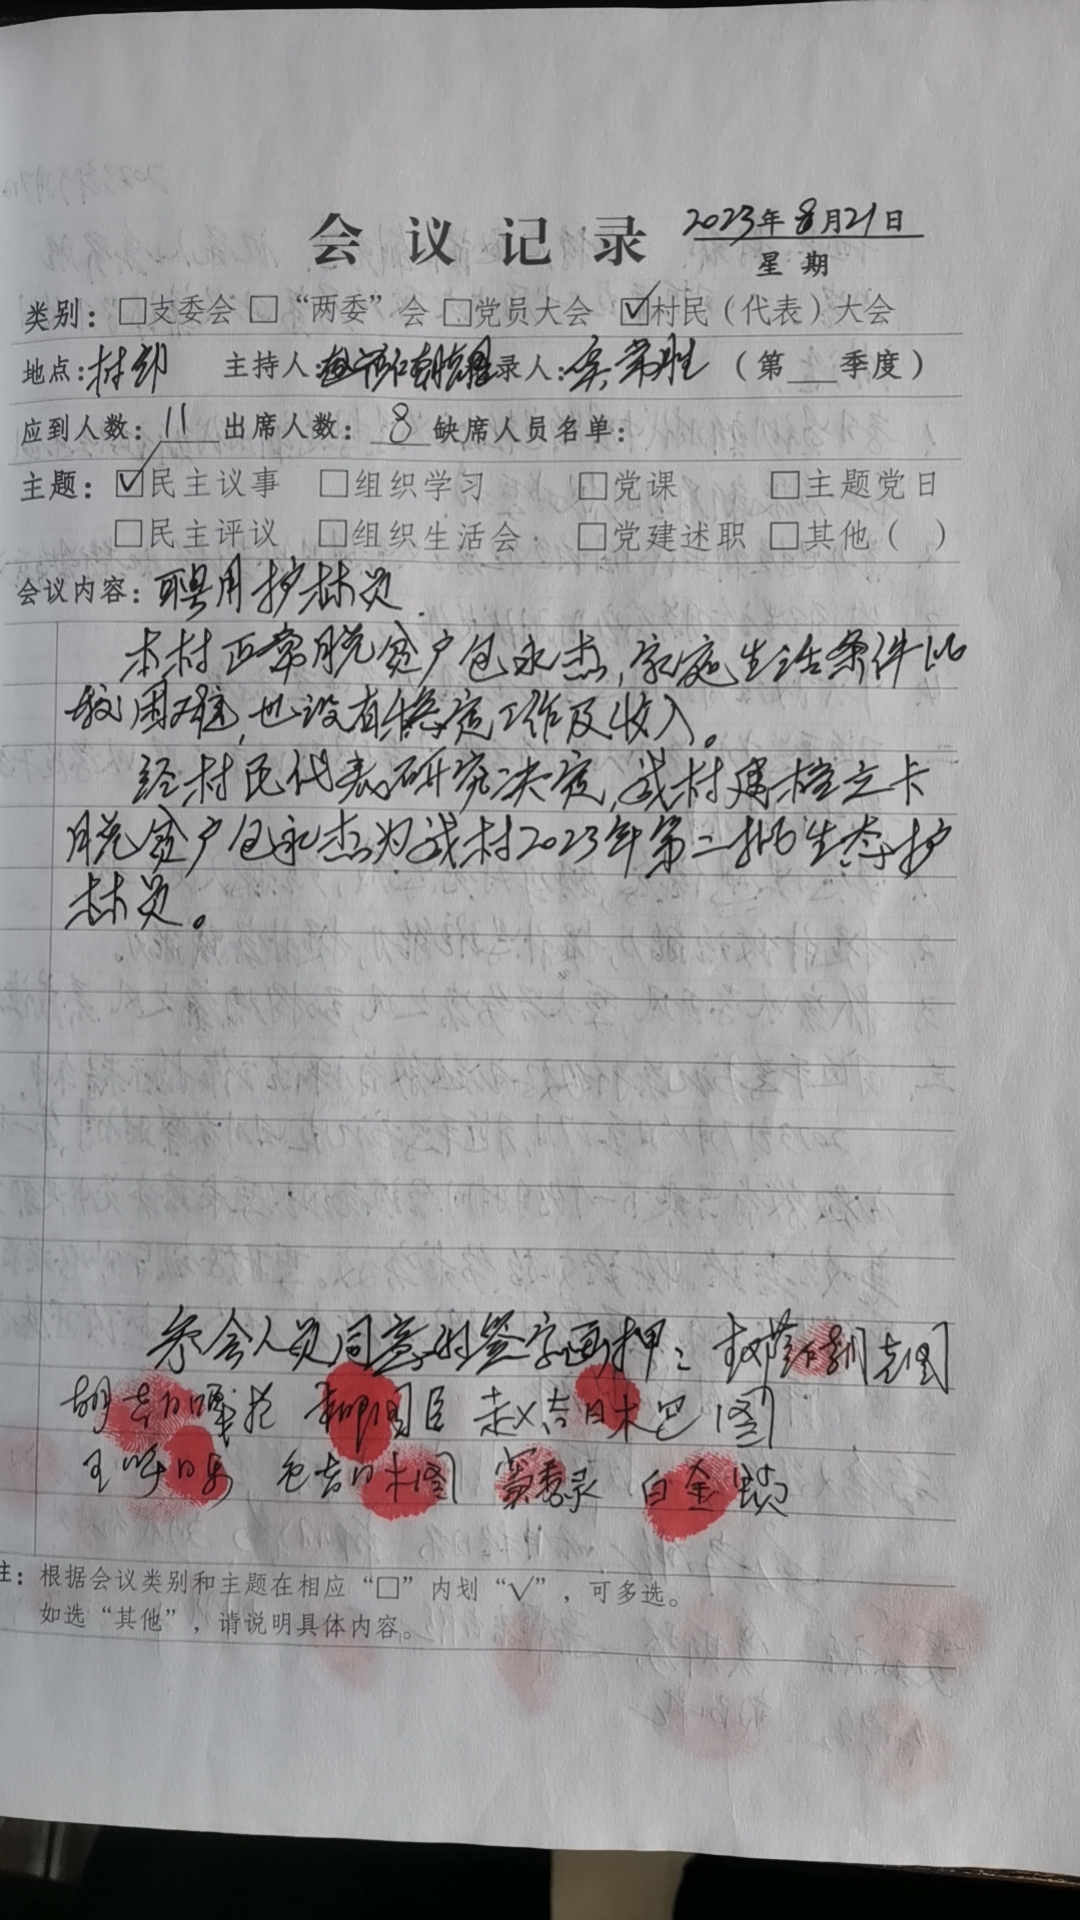 会议记录 2023年8月21日
星期
类别：□支委会 □“两委”会 □党员大会 ☑村民（代表）大会
地点：村部 主持人： 录人：吴常胜 （第 季度）
应到人数：11 出席人数：8 缺席人员名单：
主题：☑民主议事 □组织学习 □党课 □主题党日
□民主评议 □组织生活会 □党建述职 □其他（ ）
会议内容：聘用护林员.
本村正常脱贫户包永杰,家庭生活条件比
较困难,也没有稳定工作及收入。
经村民代表研究决定,我村建档立卡
脱贫户包永杰为我村2023年第二批生态护
林员。
参会人员同意的签字画押：
赵吉日木巴图
包吉日木图 白金锁
注：根据会议类别和主题在相应“□”内划“√”，可多选。
如选“其他”，请说明具体内容。